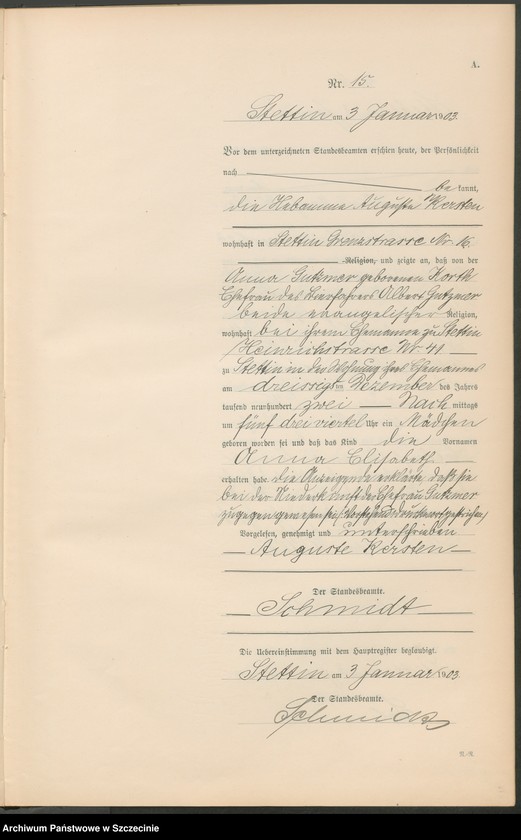 A.
Nr. 15.
Stettin am 3 Januar 1903.
Vor dem unterzeichneten Standesbeamten erschien heute, der Persönlichkeit
nach be kannt,
die Hebamme Auguste Kersten
wohnhaft in Stettin Grenzstrasse Nr. 16.
-Religion, und zeigte an, daß von der
Anna Gutzmer geborenen Korth
Ehefrau des Bierfahrers Albert Gutzmer
beide evangelischer Religion,
wohnhaft bei ihrem Ehemanne zu Stettin
Heinrichstrasse Nr. 41
zu Stettin in der Wohnung ihres Ehemannes
am dreissigsten Dezember des Jahres
tausend neunhundert zwei Nach mittags
um fünf dreiviertel Uhr ein Mädchen
geboren worden sei und daß das Kind die Vornamen
Anna Elisabeth
erhalten habe. die Anzeigende erklärte, daß sie
bei der Niederkunft der Ehefrau Gutzmer
zugegen gewesen sei (Vorstehend Druckwort gestrichen)
Vorgelesen, genehmigt und unterschrieben
Auguste Kersten
Der Standesbeamte.
Schmidt
Die Uebereinstimmung mit dem Hauptregister beglaubigt.
Stettin am 3 Januar 1903.
Der Standesbeamte.
Schmidt
Archiwum Państwowe w Szczecinie